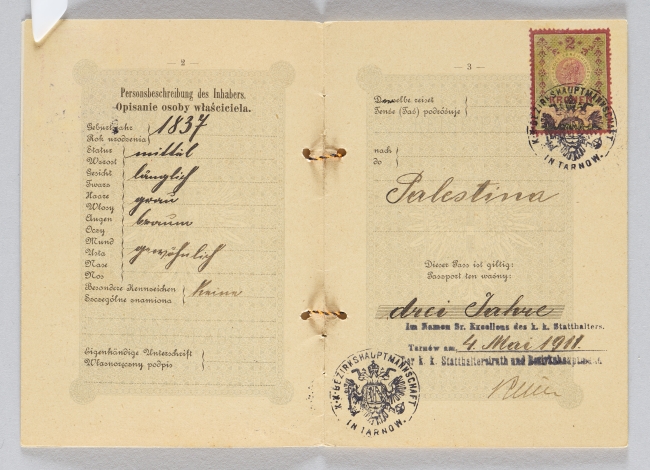 — 2 —
Personsbeschreibung des Inhabers.
Opisanie osoby właściciela.
Geburtsjahr
Rok urodzenia
1837
Statur
Wzrost
mittel
Gesicht
Twarz
länglich
Haare
Włosy
grau
Augen
Oczy
braun
Mund
Usta
Nase
Nos
gewöhnlich
Besondere Kennzeichen
Szczególne znamiona
Keine
Eigenhändige Unterschrift
Własnoręczny podpis
K.K. BEZIRKSHAUPTMANNSCHAFT
IN TARNOW.
— 3 —
Derselbe reiset
Tenże (Taż) podróżuje
nach
do
Palestina
Dieser Pass ist giltig:
Passport ten ważny:
drei Jahre
Im Namen Sr. Exzellenz des k. k. Statthalters.
Tarnów am 4. Mai 1911.
Der k. k. Statthaltereirath und Bezirkshauptmann.
2
KRONEN
K.K. BEZIRKSHAUPTMANNSCHAFT
IN TARNOW.